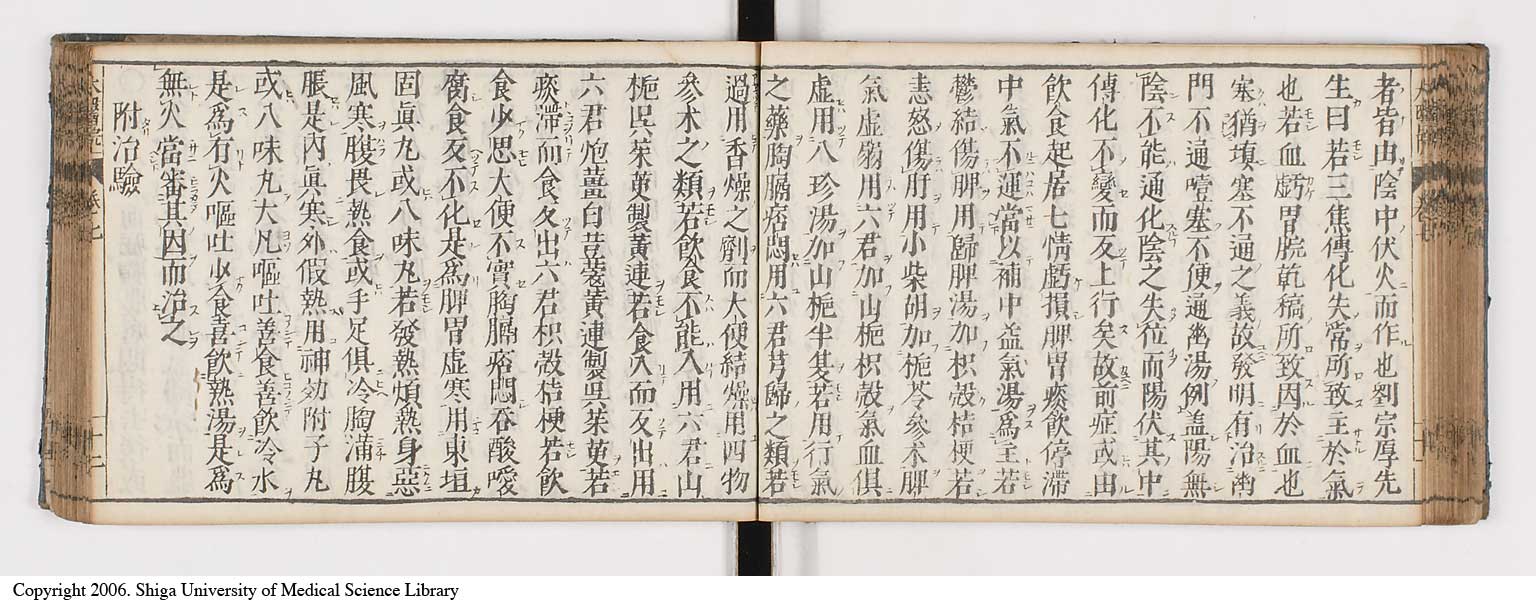 者皆由陰中伏火而作也劉宗厚先
生曰若三焦傳化失常所致主於氣
也若血虧胃脘乾槁所致因於血也
塞猶塡塞不通之義故發明有治幽
門不通噎塞不便通幽湯例盖陽無
陰不能通化陰之失位而陽伏其中
傳化不變而反上行矣故前症或由
飲食起居七情虧損脾胃痰飲停滯
中氣不運當以補中益氣湯爲主若
鬱結傷脾用歸脾湯加枳殼桔梗若
恚怒傷肝用小柴胡加梔苓參朮脾
氣虚弱用六君加山梔枳殼氣血俱
虚用八珍湯加山梔半夏若用行氣
之藥胸膈痞悶用六君芎歸之類若
過用香燥之劑而大便結燥用四物
參朮之類若飲食不能入用六君山
梔呉茱萸製黄連若食入而反出用
六君炮薑白荳蔻黄連製呉茱萸若
痰滯而食反出六君枳殼桔梗若飲
食少思大便不實胸膈痞悶呑酸噯
腐食反不化是爲脾胃虚寒用東垣
固眞丸或八味丸若發熱煩熱身惡
風寒腹畏熱食或手足俱冷胸滿腹
脹是内眞寒外假熱用神効附子丸
或八味丸大凡嘔吐善食善飲冷水
是爲有火嘔吐少食喜飲熱湯是爲
無火當審其因而治之
附治驗
Copyright 2006. Shiga University of Medical Science Library